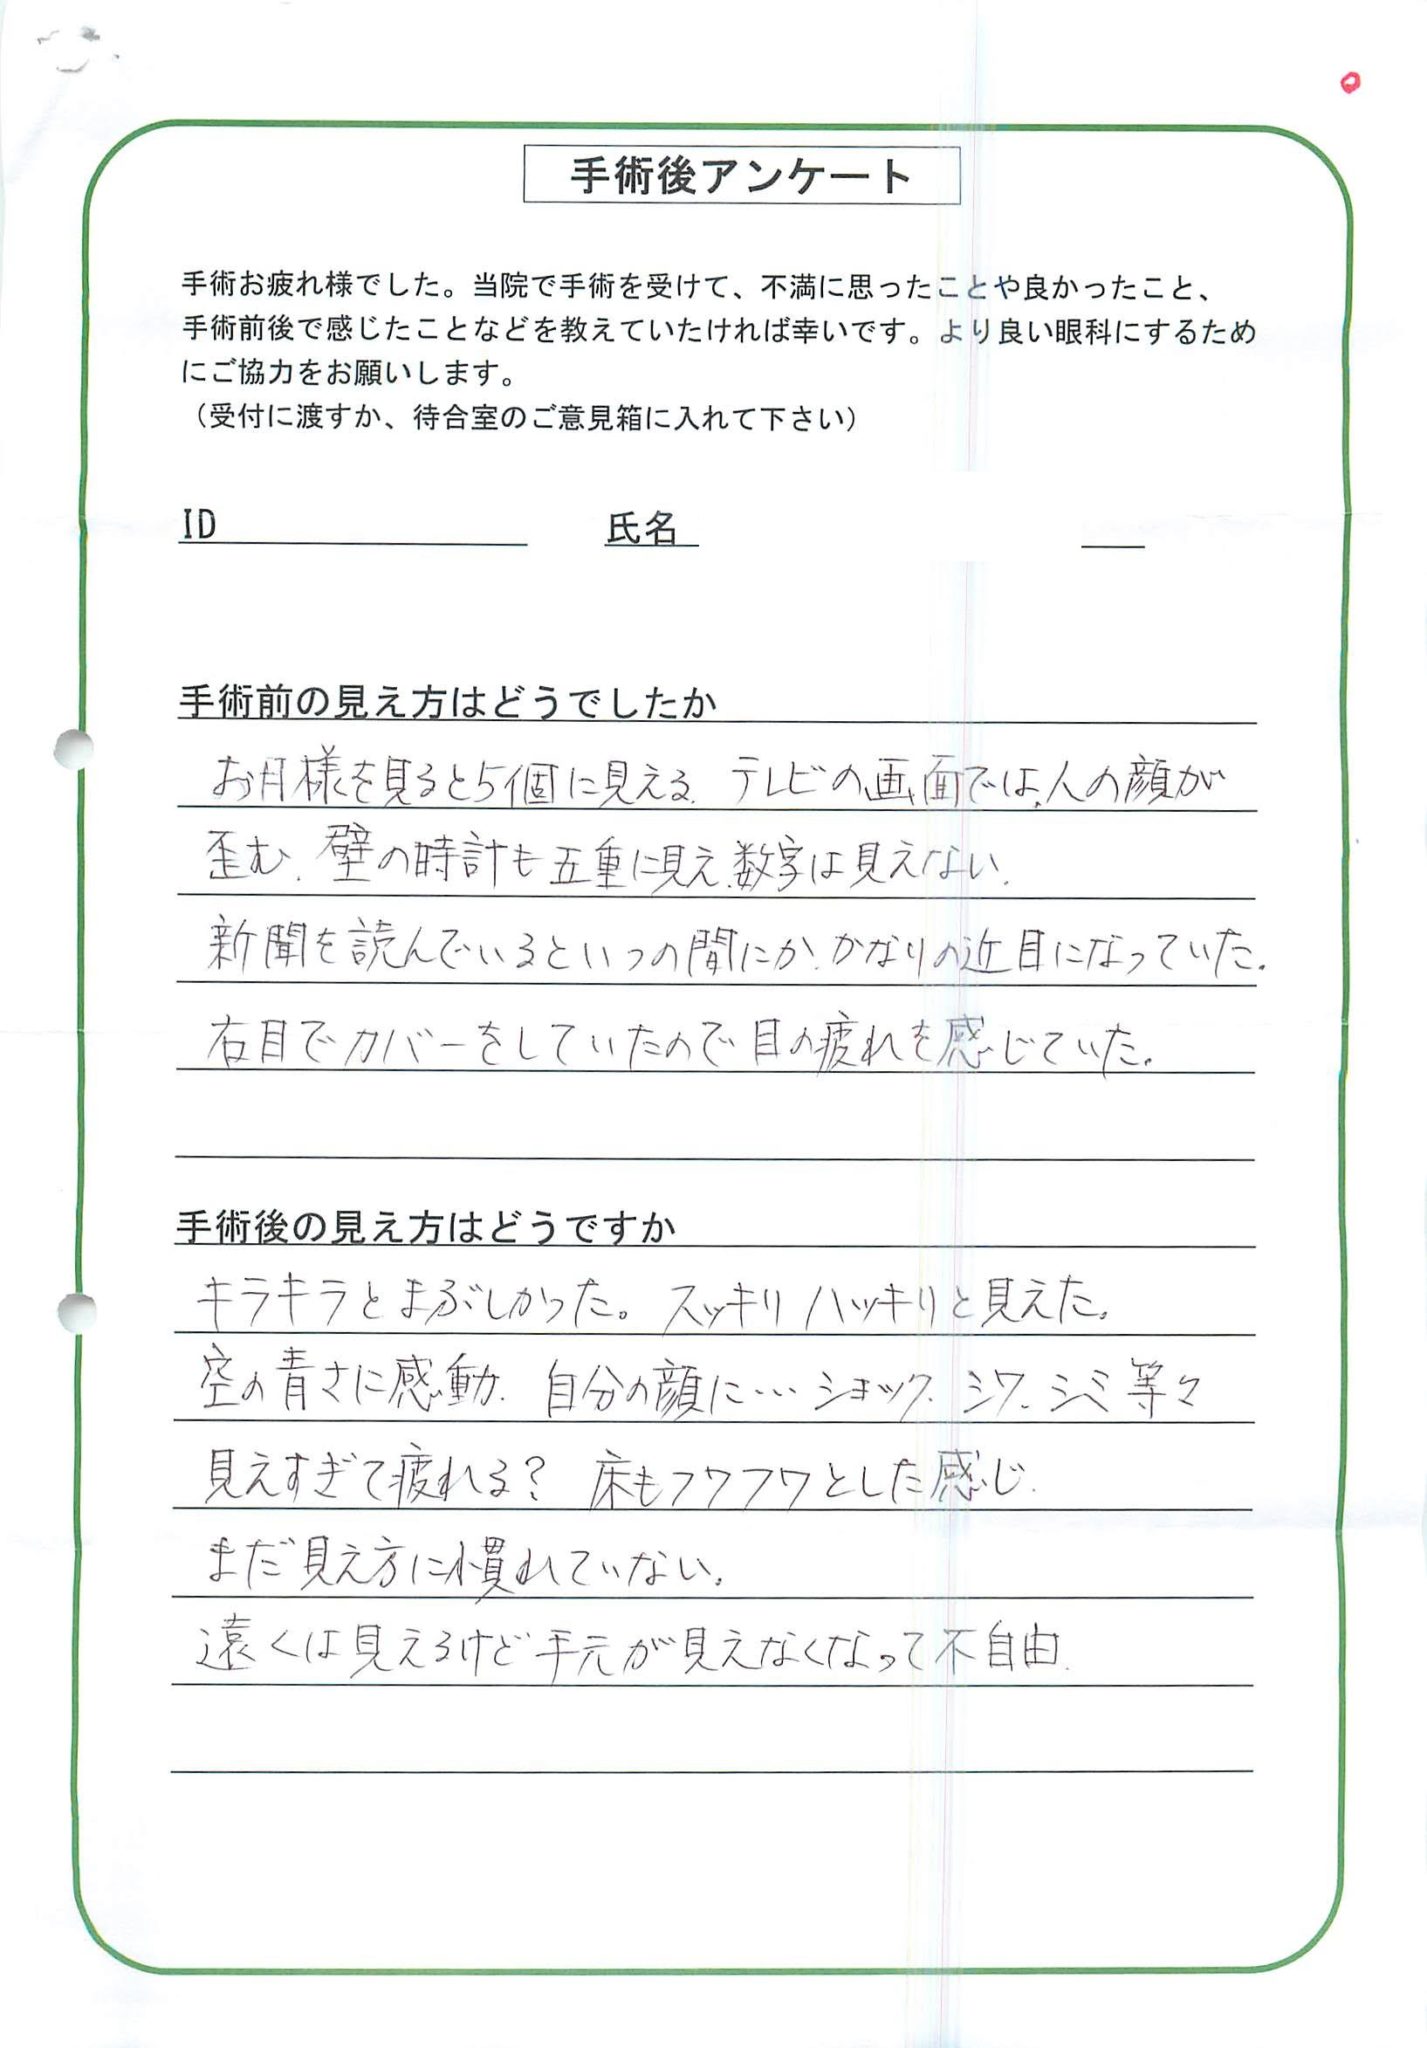 手術後アンケート
手術お疲れ様でした。当院で手術を受けて、不満に思ったことや良かったこと、
手術前後で感じたことなどを教えていたければ幸いです。より良い眼科にするため
にご協力をお願いします。
（受付に渡すか、待合室のご意見箱に入れて下さい）
ID 氏名
手術前の見え方はどうでしたか
お月様を見ると5個に見える、テレビの画面では、人の顔が
歪む、壁の時計も五重に見え、数字は見えない。
新聞を読んでいるといつの間にか、かなりの近目になっていた。
右目でカバーをしていたので目の疲れを感じていた。
手術後の見え方はどうですか
キラキラとまぶしかった。スッキリハッキリと見えた。
空の青さに感動、自分の顔に…ショック、シワ、シミ等々
見えすぎて疲れる？ 床もフワフワとした感じ、
まだ見え方に慣れていない。
遠くは見えるけど手元が見えなくなって不自由、